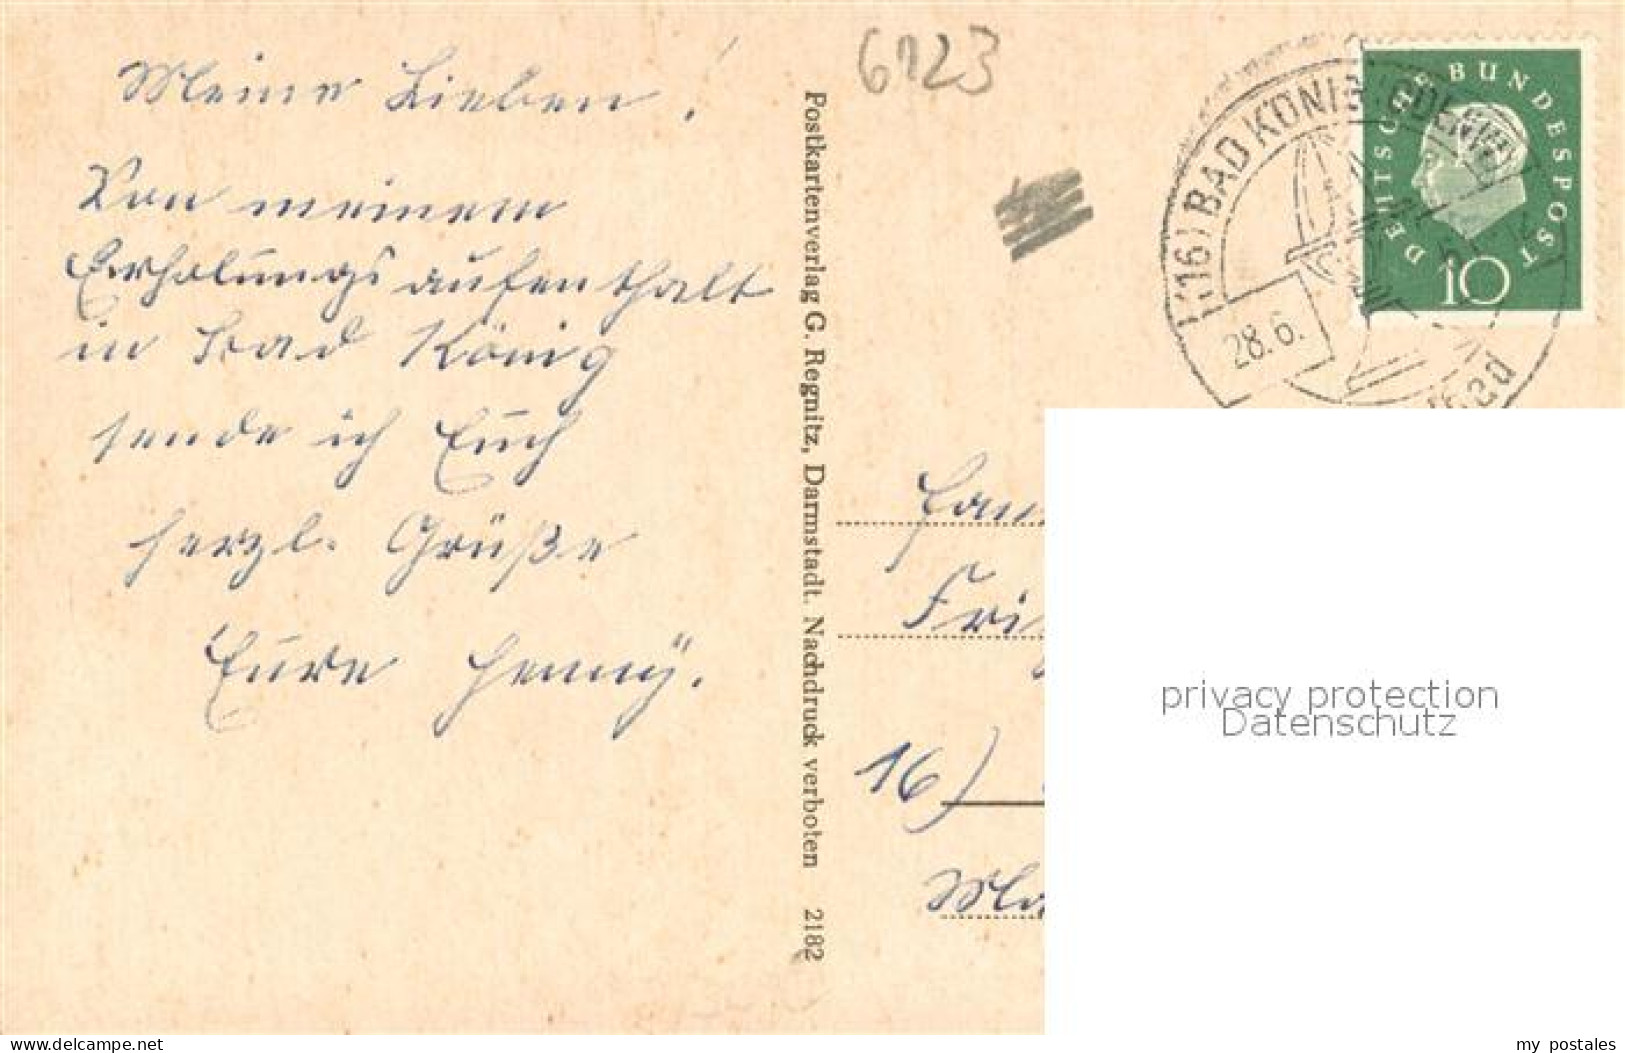 Meine Lieben!
Von meinem
Erholungsaufenthalt
in Bad König
sende ich Euch
herzl. Grüße
Eure Henny.
Postkartenverlag G. Regnitz, Darmstadt. Nachdruck verboten 2182
6123
(16) BAD KÖNIG
28.6.
DEUTSCHE BUNDESPOST
10
Fri
16)
privacy protection
Datenschutz
www.delcampe.net
my_postales